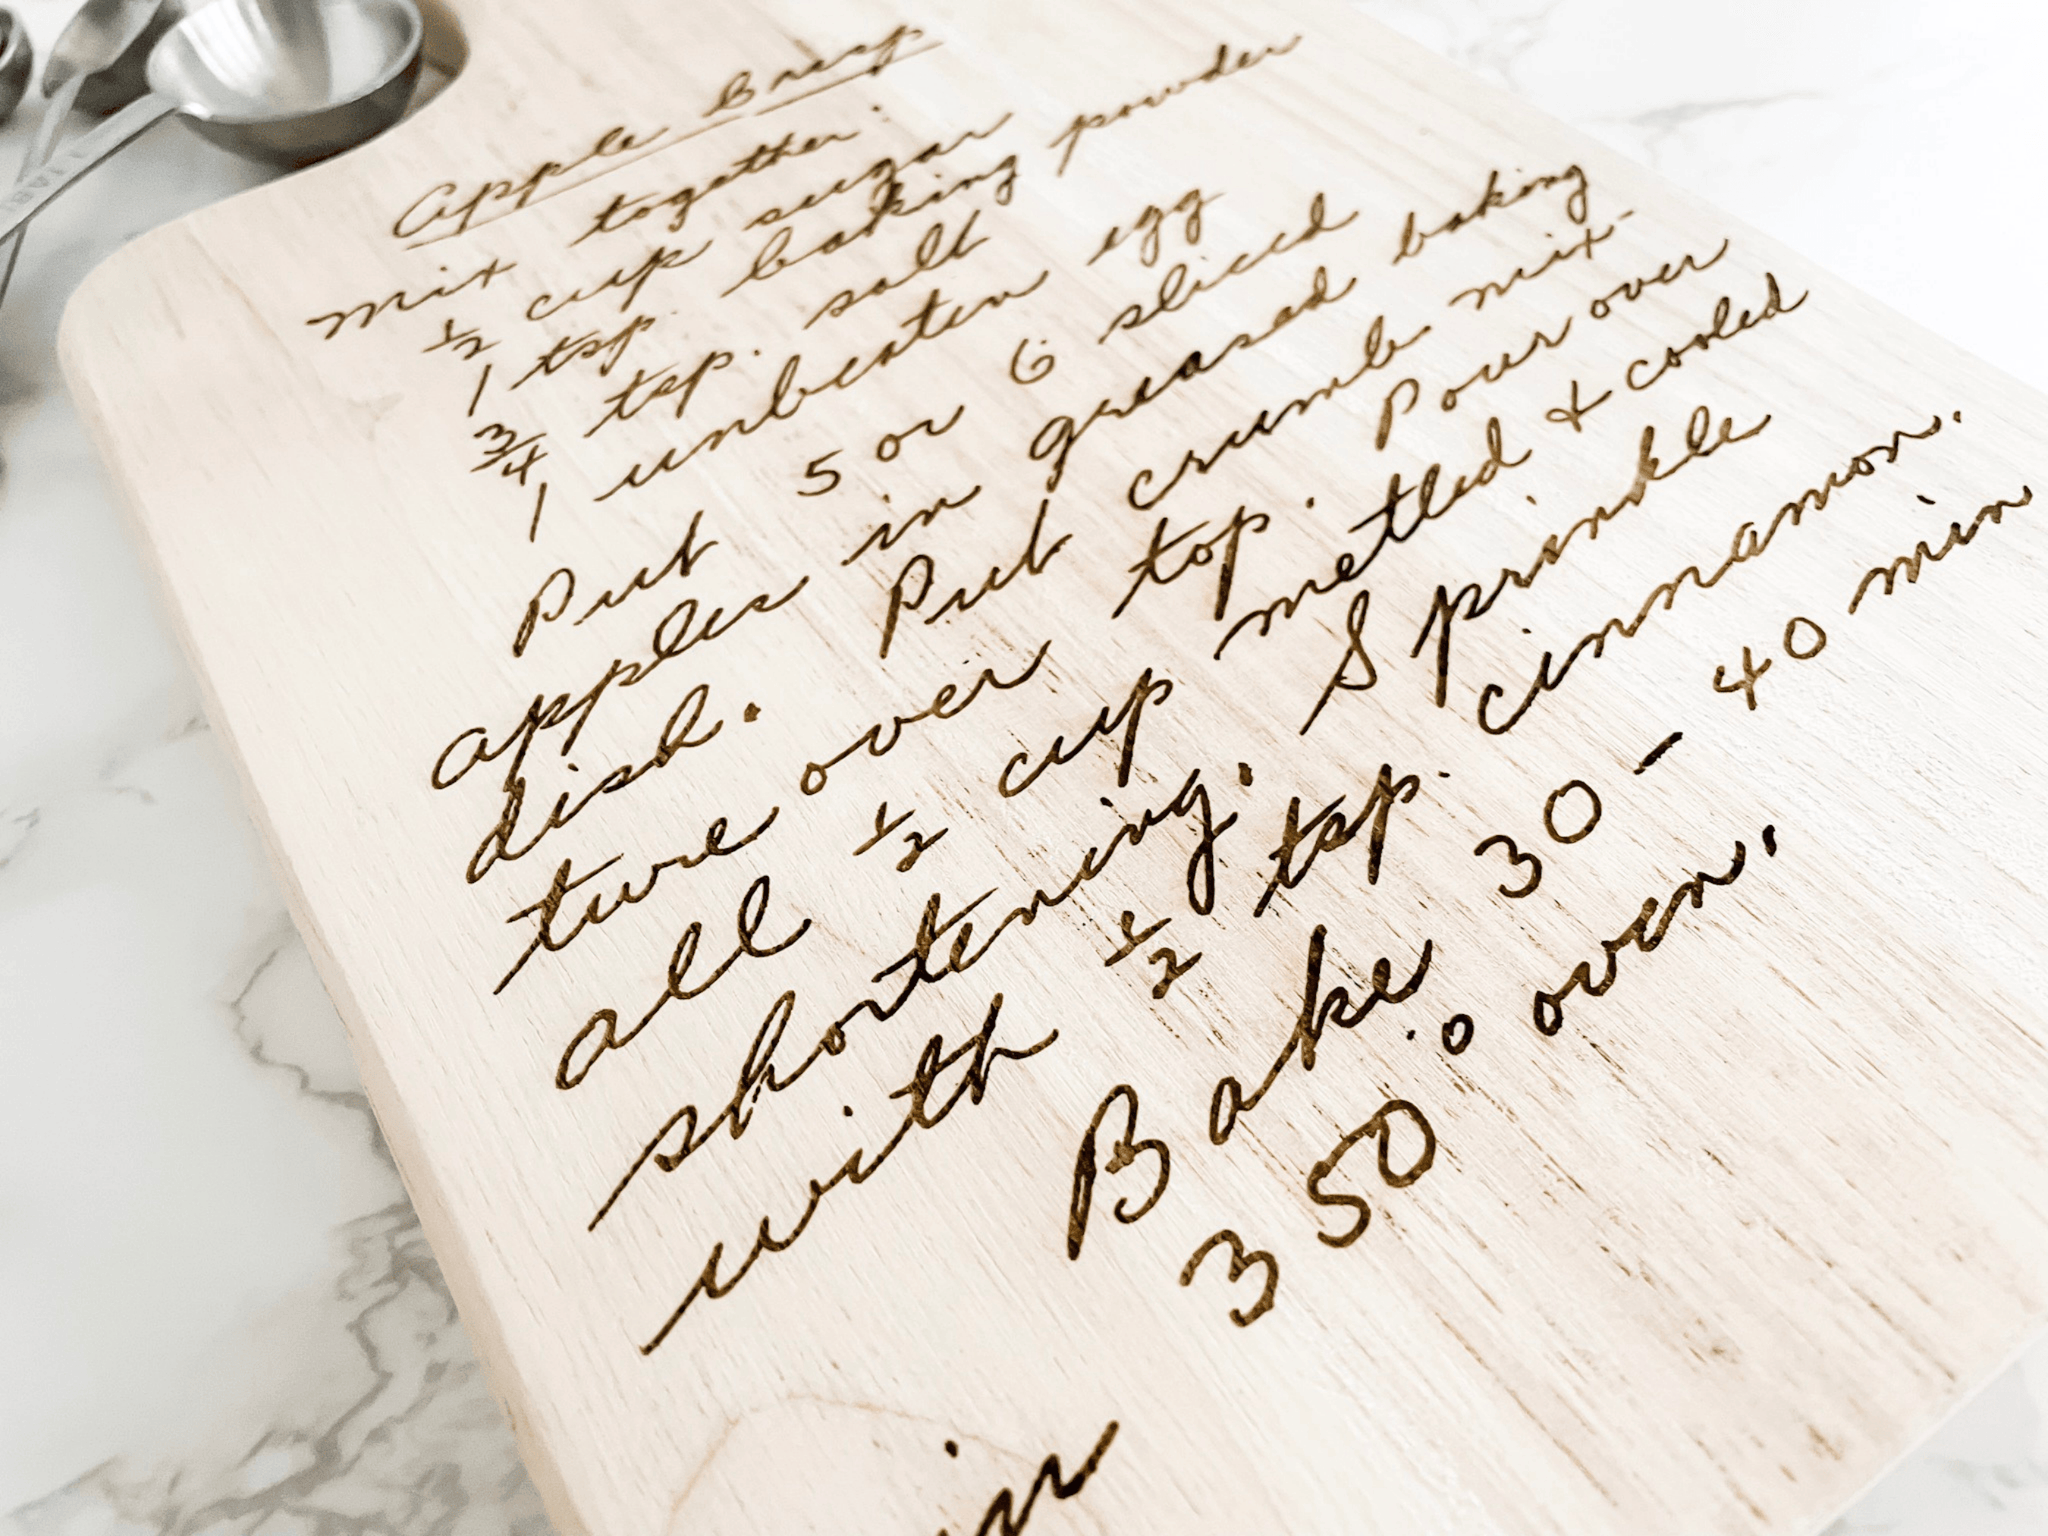 Apple Crisp
mix together:
½ cup sugar
1 tsp. baking powder
¾ tsp. salt
1 unbeaten egg
Put 5 or 6 sliced
apples in greased baking
dish. Put crumb mix-
ture over top. Pour over
all ½ cup metled & cooled
shortening. Sprinkle
with ½ tsp. cinnamon.
Bake 30 - 40 min
350° oven.